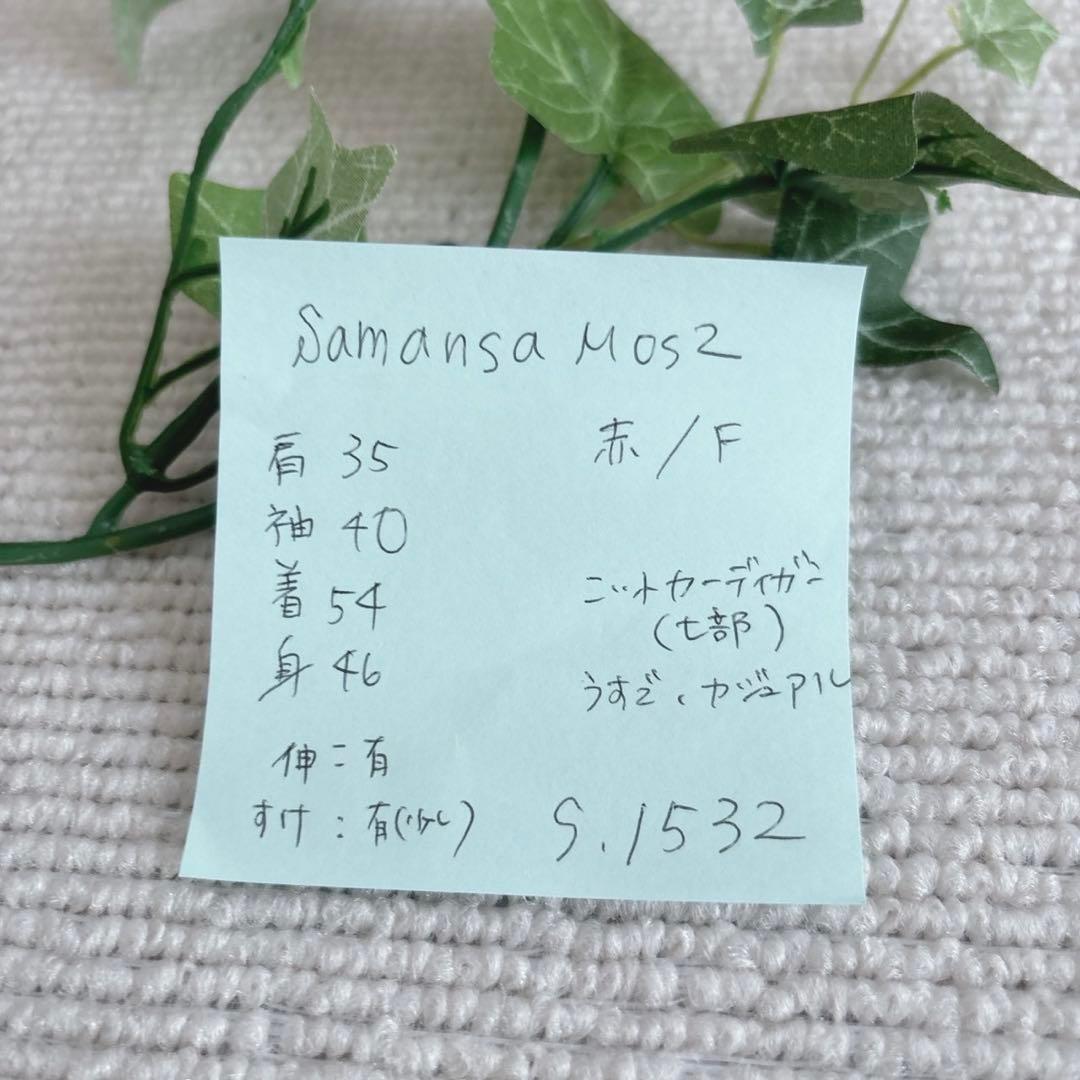 Samansa Mos2
赤/F
肩 35
袖 40
着 54
身 46
ニットカーディガン
(七部)
うすで、カジュアル
伸:有
すけ:有(少し)
S.1532